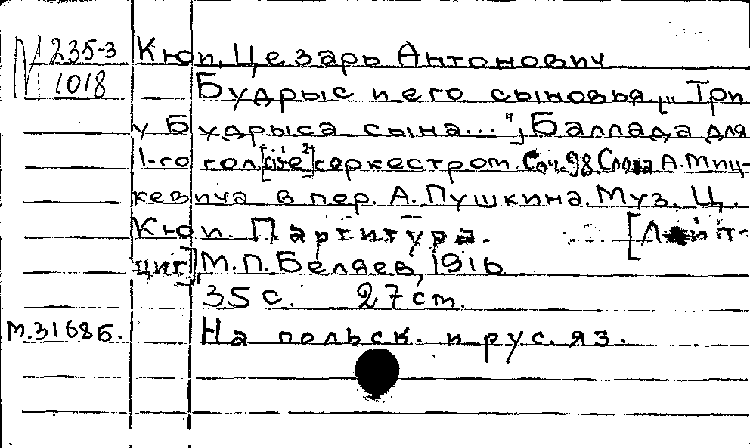 N 235-3 Кюи, Цезарь Антонович
1018 Будрыс и его сыновья. „Три
у Будрыса сына...", Баллада для
1-го гол. с оркестром. Соч. 98. Слова А. Миц-
кевича в пер. А. Пушкина. Муз. Ц.
Кюи. Партитура. [Лейп-
циг], М.П. Беляев, 1916
35 с. 27 см.
М.3168Б. На польск. и рус. яз.